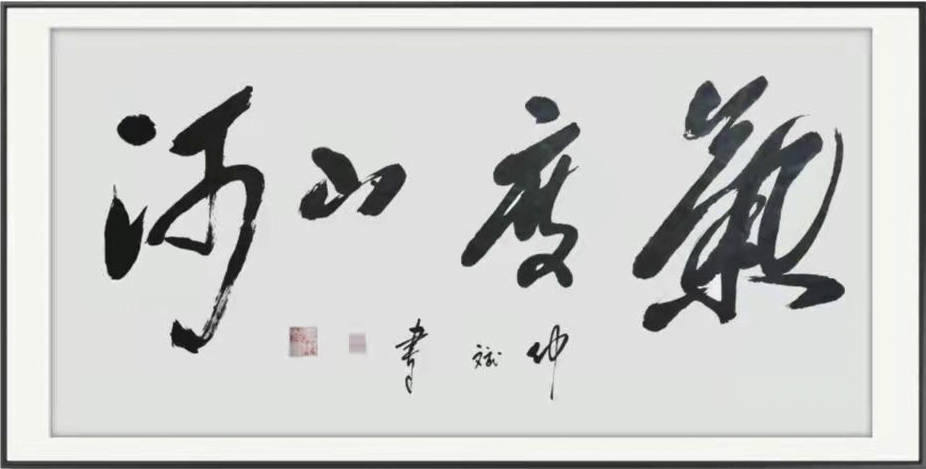 氣度山河
仲斌書